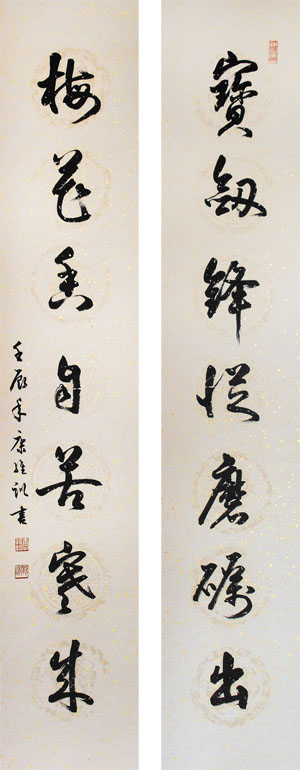 寶劍鋒從磨礪出
梅花香自苦寒來
壬辰年康
書